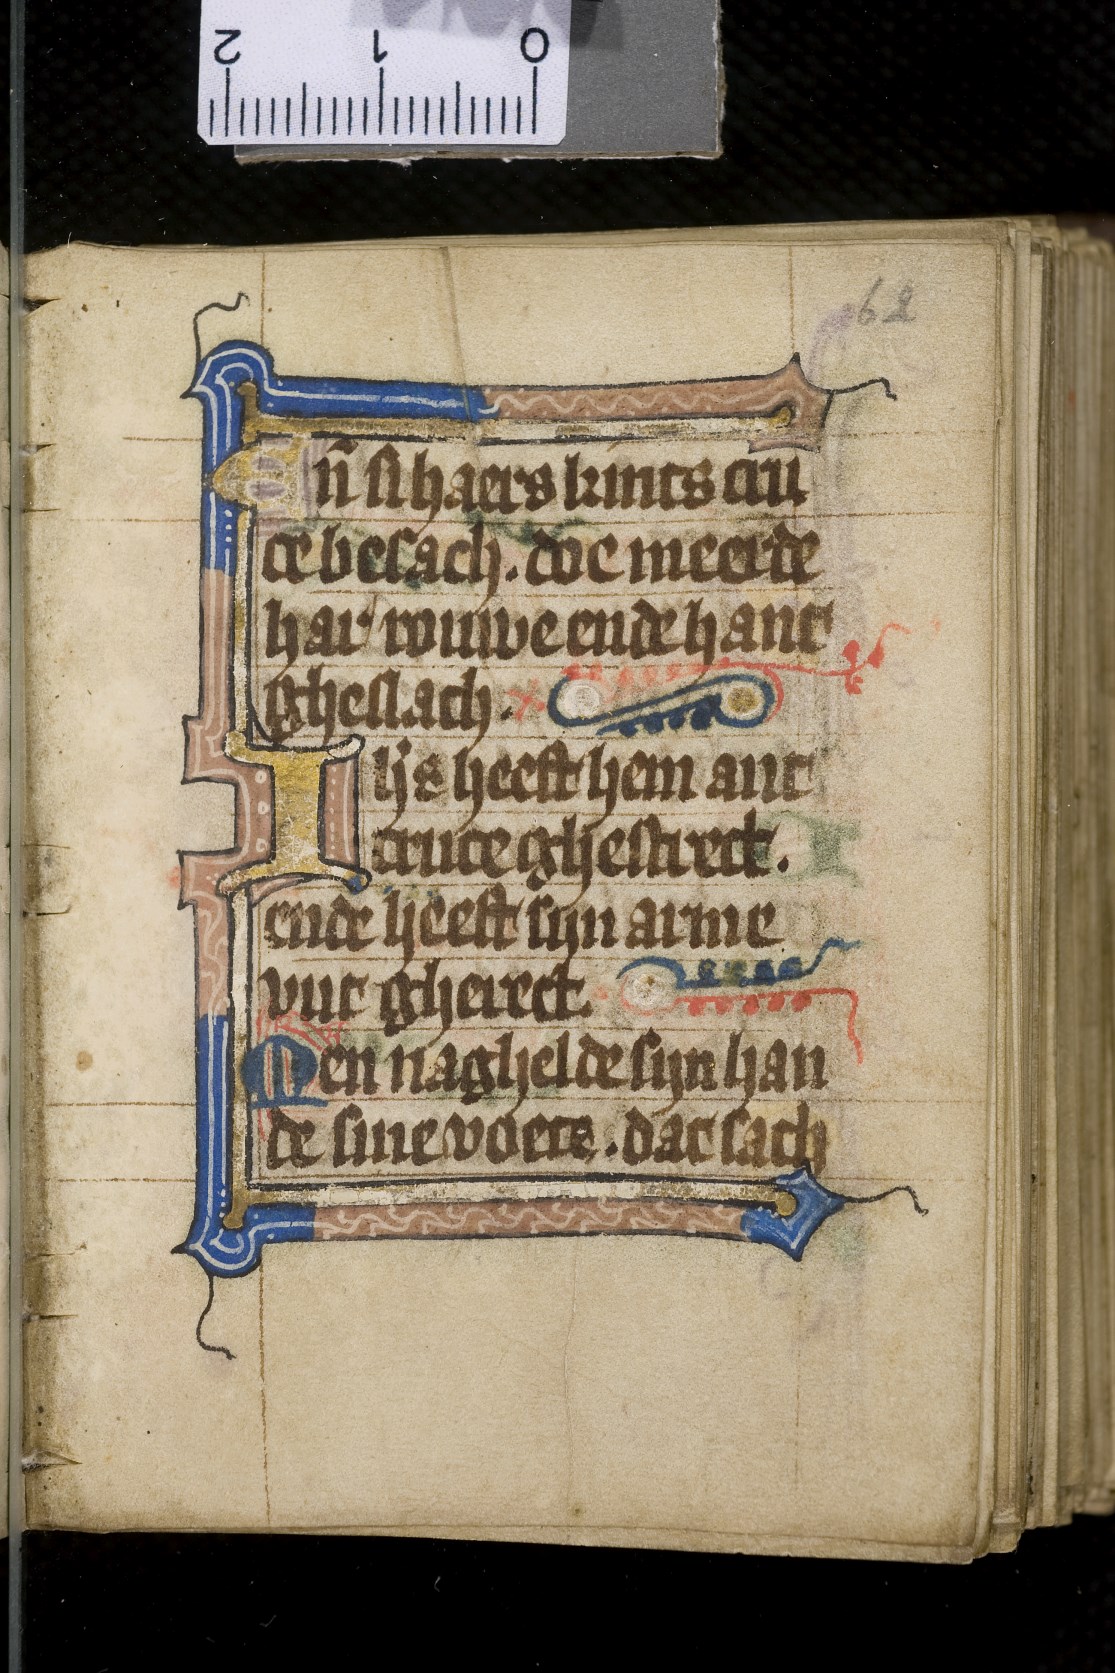 2 1 0
62
En̄ si haers kints cru
ce besach. doe meerde
har rouwe ende hant
gheslach.
Ih's heeft hem ant
cruce ghestrect.
ende heeft sijn arme
vut gherect.
Men naghelde sijn han
de sine voete. dat sach